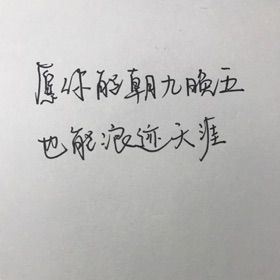 愿你能朝九晚五
也能浪迹天涯